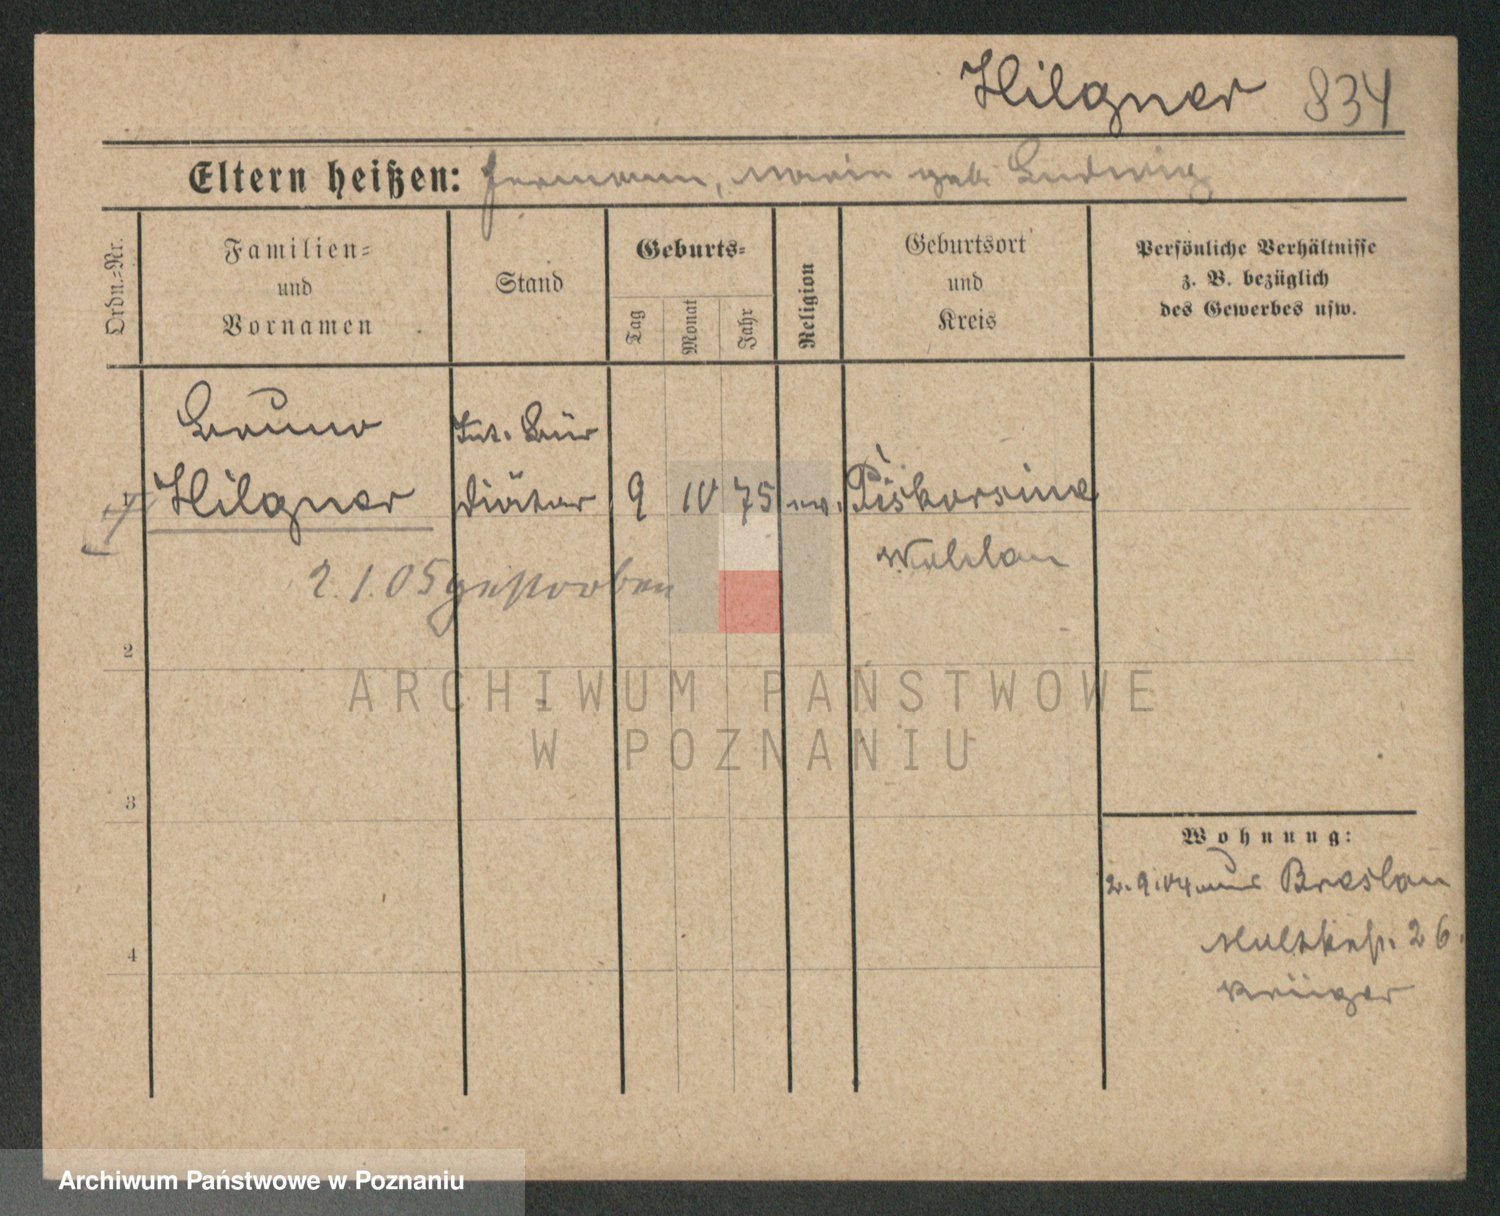 Hilgner 834
Eltern heißen: Hermann, Marie geb. Ludwig
Ordn.-Nr.
Familien-
und
Vornamen
Stand
Geburts-
Tag
Monat
Jahr
Religion
Geburtsort
und
Kreis
Persönliche Verhältnisse
z. B. bezüglich
des Gewerbes usw.
Bruno
Int. Bür
Hilgner
Diätar
9 IV 75 ev. Piskorsine
Wohlau
2.1.05 gestorben
2
3
4
ARCHIWUM PAŃSTWOWE
W POZNANIU
Wohnung:
2. 9. 04 aus Breslau
Moltkestr. 26.
Krüger
Archiwum Państwowe w Poznaniu